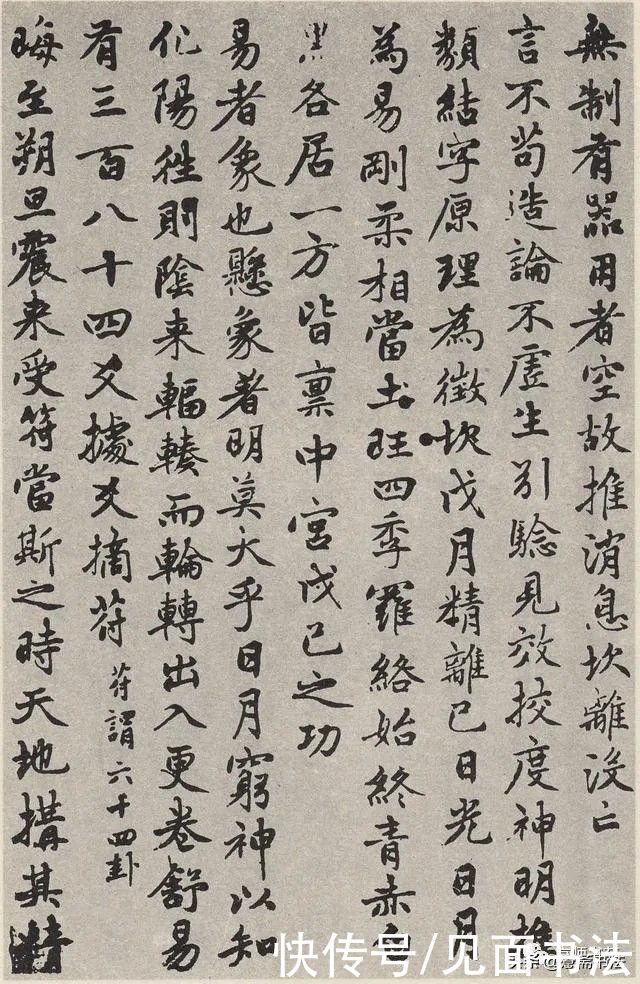 無制有器用者空故推消息坎離没亡
言不苟造論不虛生引驗見效挍度神明推
類結字原理為徵坎戊月精離己日光日月
為易剛柔相當土旺四季羅絡始終青赤白
黑各居一方皆禀中宮戊己之功
易者象也懸象著明莫大乎日月窮神以知
化陽往則陰来輻輳而輪轉出入更卷舒易
有三百八十四爻據爻摘符 符謂六十四卦
晦至朔旦震来受符當斯之時天地搆其精
快传号/见面书法